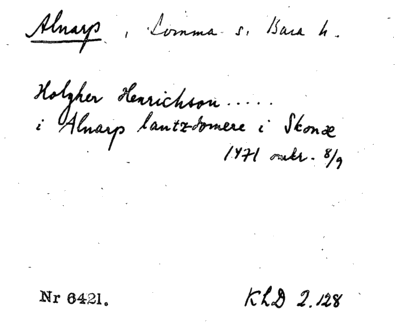 Alnarp, Lomma s. Bara h.
Holgher Henrichson.....
i Alnarp lantzdomere i Skonæ
1471 omkr. 8/9
Nr 6421.
KLD 2.128